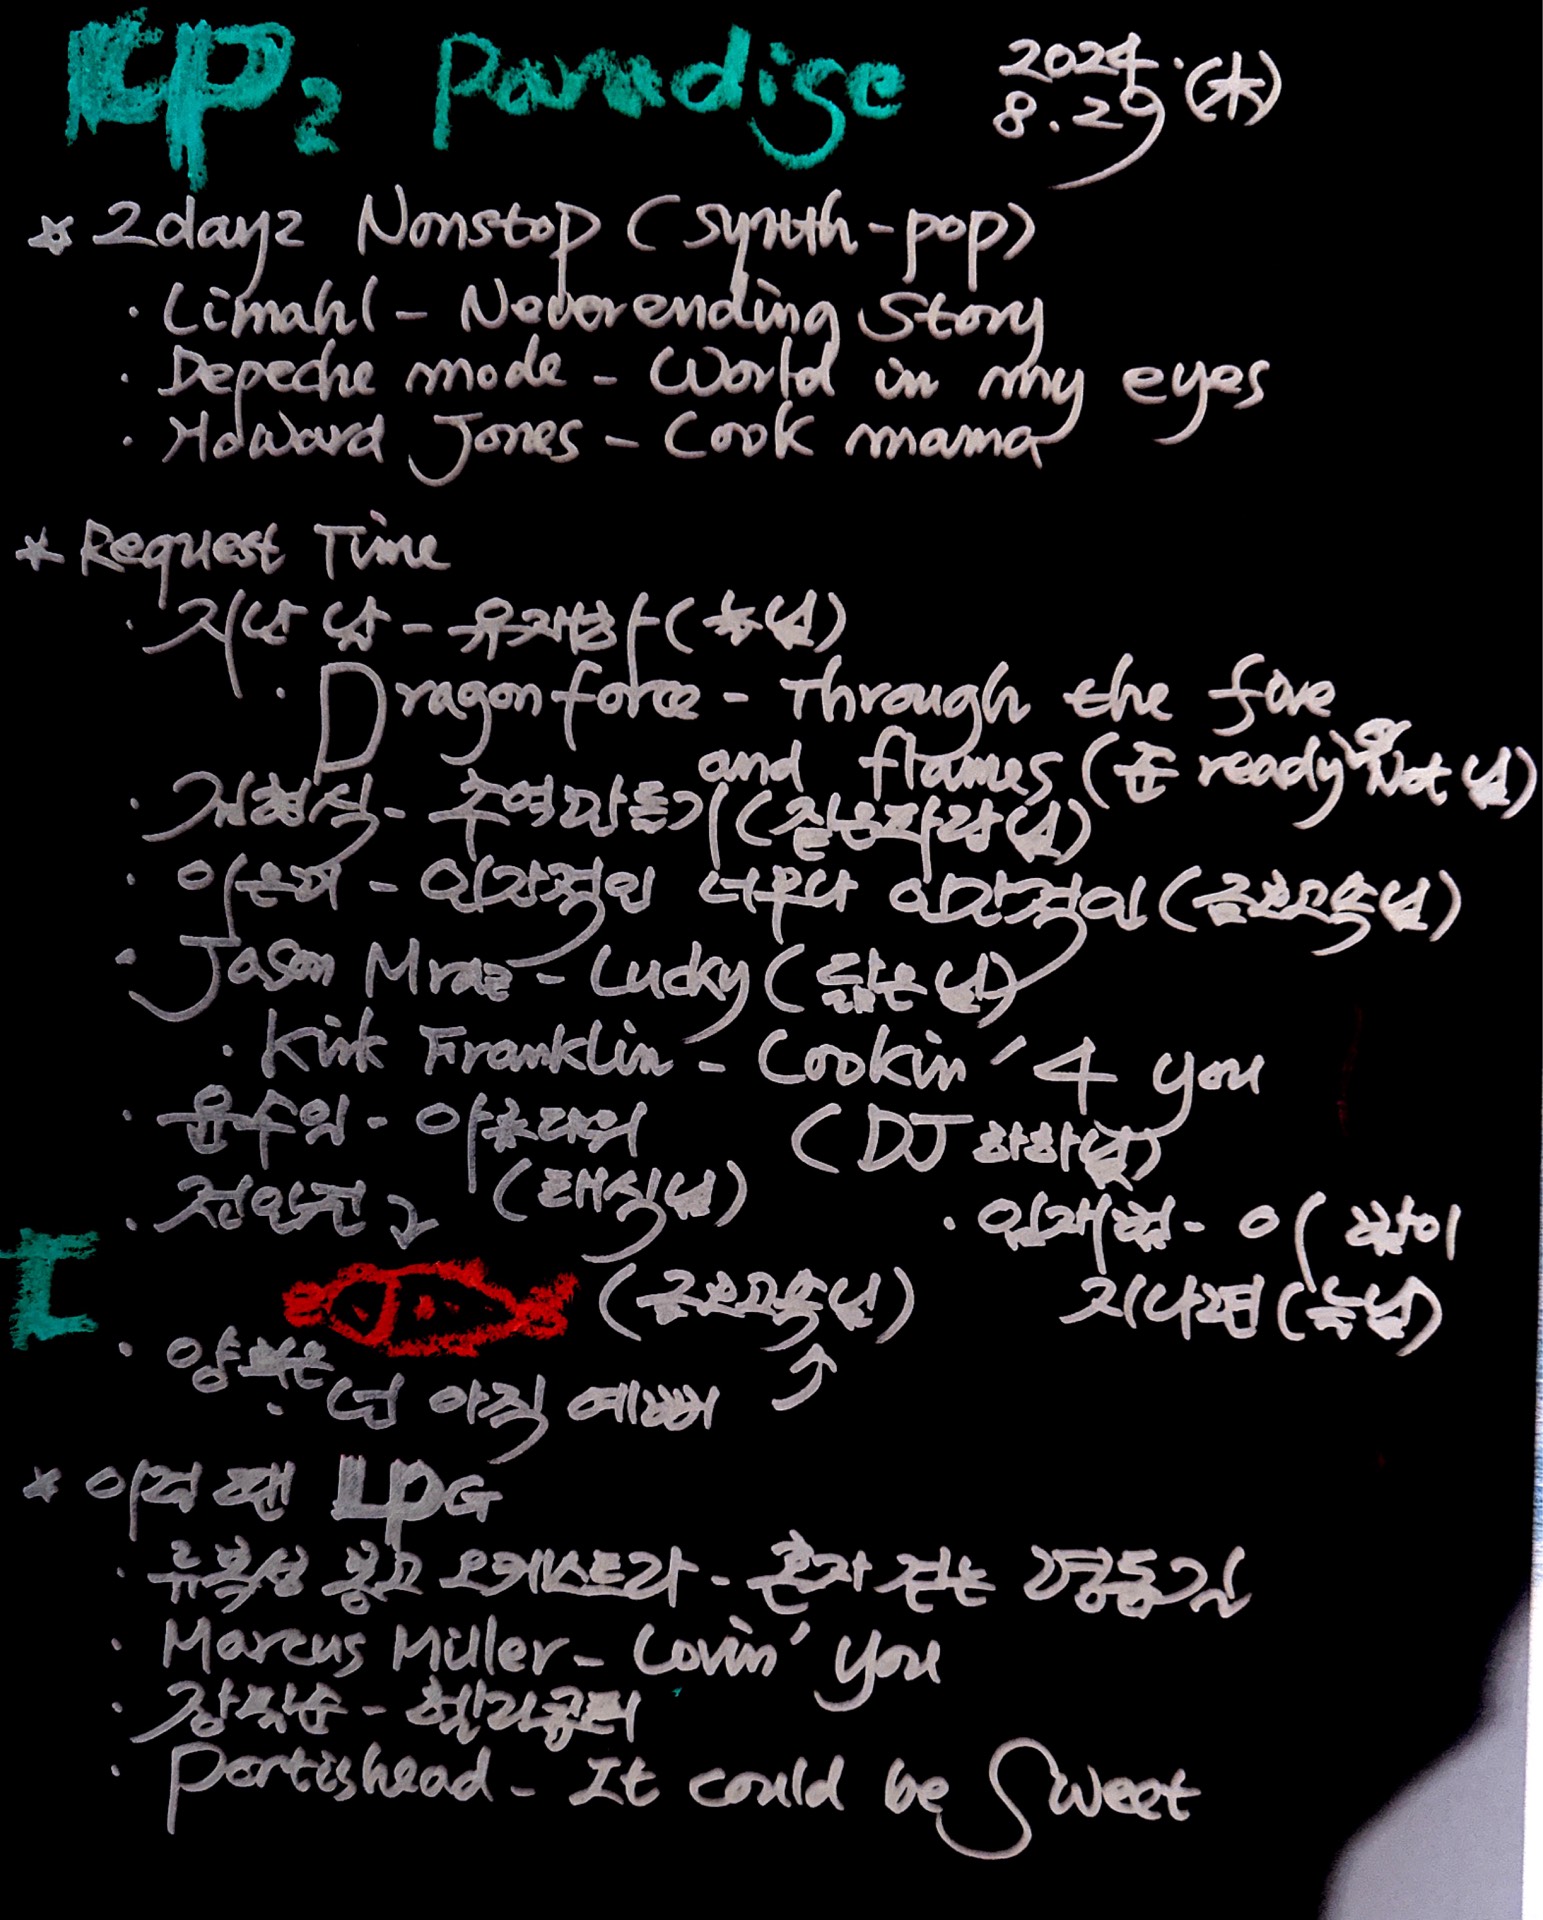 KP2 Paradise 2024. 8.29 (水)
☆ 2dayz Nonstop (synth-pop)
· Limahl - Neverending Story
· Depeche mode - World in my eyes
· Howard Jones - Cook mama
* Request Time
· 지난 날 - 유재하 (농님)
· Dragonforce - Through the fire
and flames (준 ready or Not 님)
· 수영 (님)
· 이은미 - 인간적인 너무나 인간적인 (님)
· Jason Mraz - Lucky (님)
· Kirk Franklin - Cookin' 4 you
(DJ 하하님)
· 윤수일 - 아름다워
(태식님)
· 전인권
· 임재범 - 이 밤이
지나면 (농님)
(님)
· 양희은
· 넌 아직 예뻐
* LPG
· 류복성 봉고 오케스트라 - 혼자 걷는 명동길
· Marcus Miller - Lovin' you
· 장필순 -
· Portishead - It could be Sweet